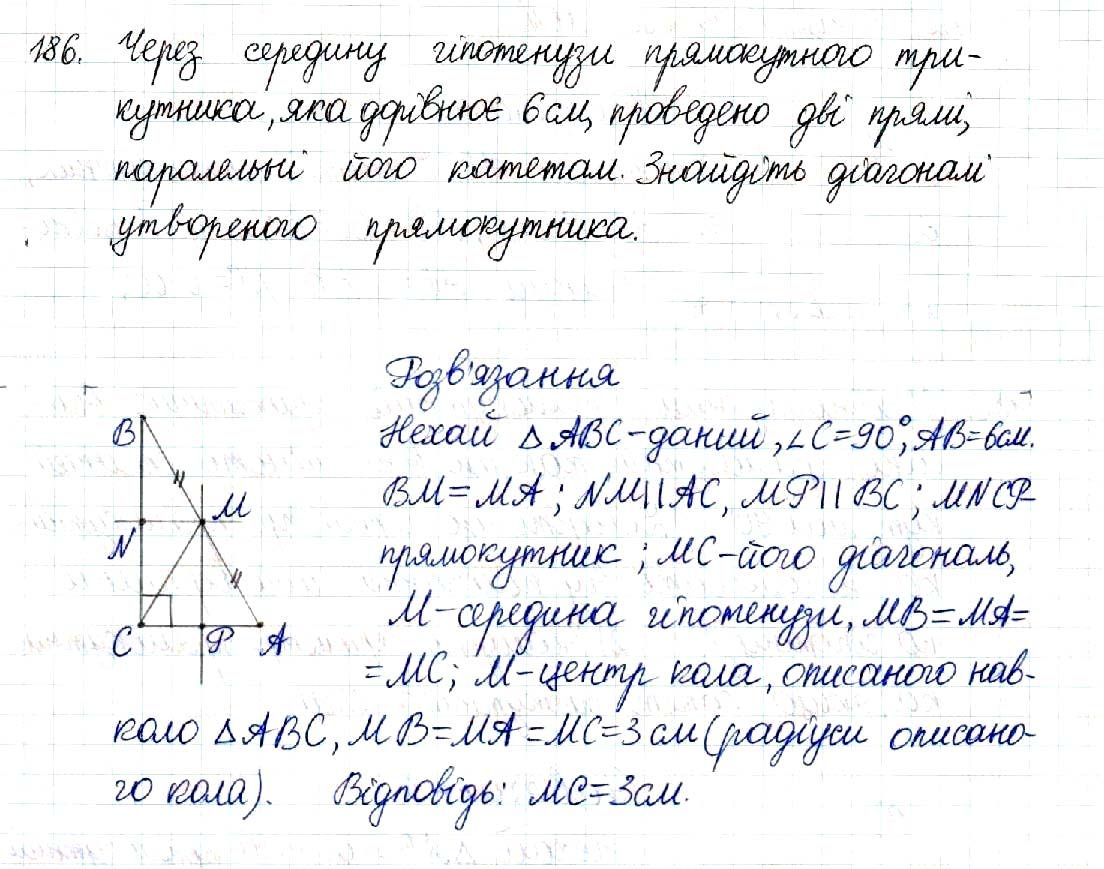 186. Через середину гіпотенузи прямокутного три-
кутника, яка дорівнює 6 см, проведено дві прямі,
паралельні його катетам. Знайдіть діагоналі
утвореного прямокутника.
Розв'язання
Нехай △ABC-даний, ∠C=90°, AB=6см.
BM=MA; NM||AC, MP||BC; MNCP-
прямокутник; MC-його діагональ,
M-середина гіпотенузи, MB=MA=
=MC; M-центр кола, описаного нав-
коло △ABC, MB=MA=MC=3 см (радіуси описано-
го кола). Відповідь: MC=3см.
B
M
N
C
P
A